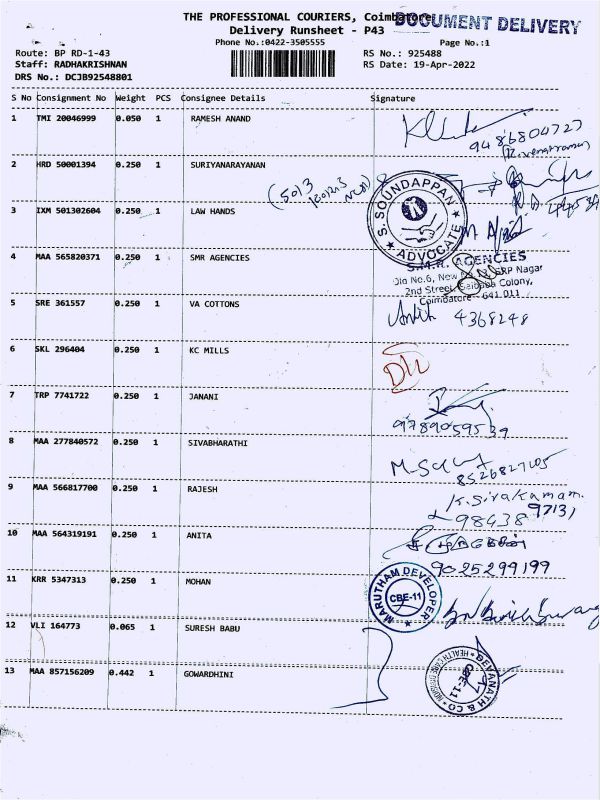 THE PROFESSIONAL COURIERS, Coimbatore
DOCUMENT DELIVERY
Delivery Runsheet - P43
Phone No.:0422-3505555
Page No.:1
Route: BP RD-1-43
RS No.: 925488
Staff: RADHAKRISHNAN
RS Date: 19-Apr-2022
DRS No.: DCJB92548801
S No Consignment No Weight PCS Consignee Details Signature
1 TMI 20046999 0.050 1 RAMESH ANAND
9486804727
2 HRD 50001394 0.250 1 SURIYANARAYANAN
3 IXM 501302604 0.250 1 LAW HANDS
S. SOUNDAPPAN
ADVOCATE
4 MAA 565820371 0.250 1 SMR AGENCIES
S.M.R. AGENCIES
D/o No.6, New SRP Nagar
2nd Street, Saibaba Colony,
Coimbatore - 641 011
5 SRE 361557 0.250 1 VA COTTONS
4368248
6 SKL 296404 0.250 1 KC MILLS
7 TRP 7741722 0.250 1 JANANI
9789059539
8 MAA 277840572 0.250 1 SIVABHARATHI
8526827105
9 MAA 566817700 0.250 1 RAJESH
K. Sivakamam.
98438 97131
10 MAA 564319191 0.250 1 ANITA
9025299199
11 KRR 5347313 0.250 1 MOHAN
MARUTHAM DEVELOPER
CBE-11
12 VLI 164773 0.065 1 SURESH BABU
13 MAA 857156209 0.442 1 GOWARDHINI
DEVANATH & CO
CBE-11